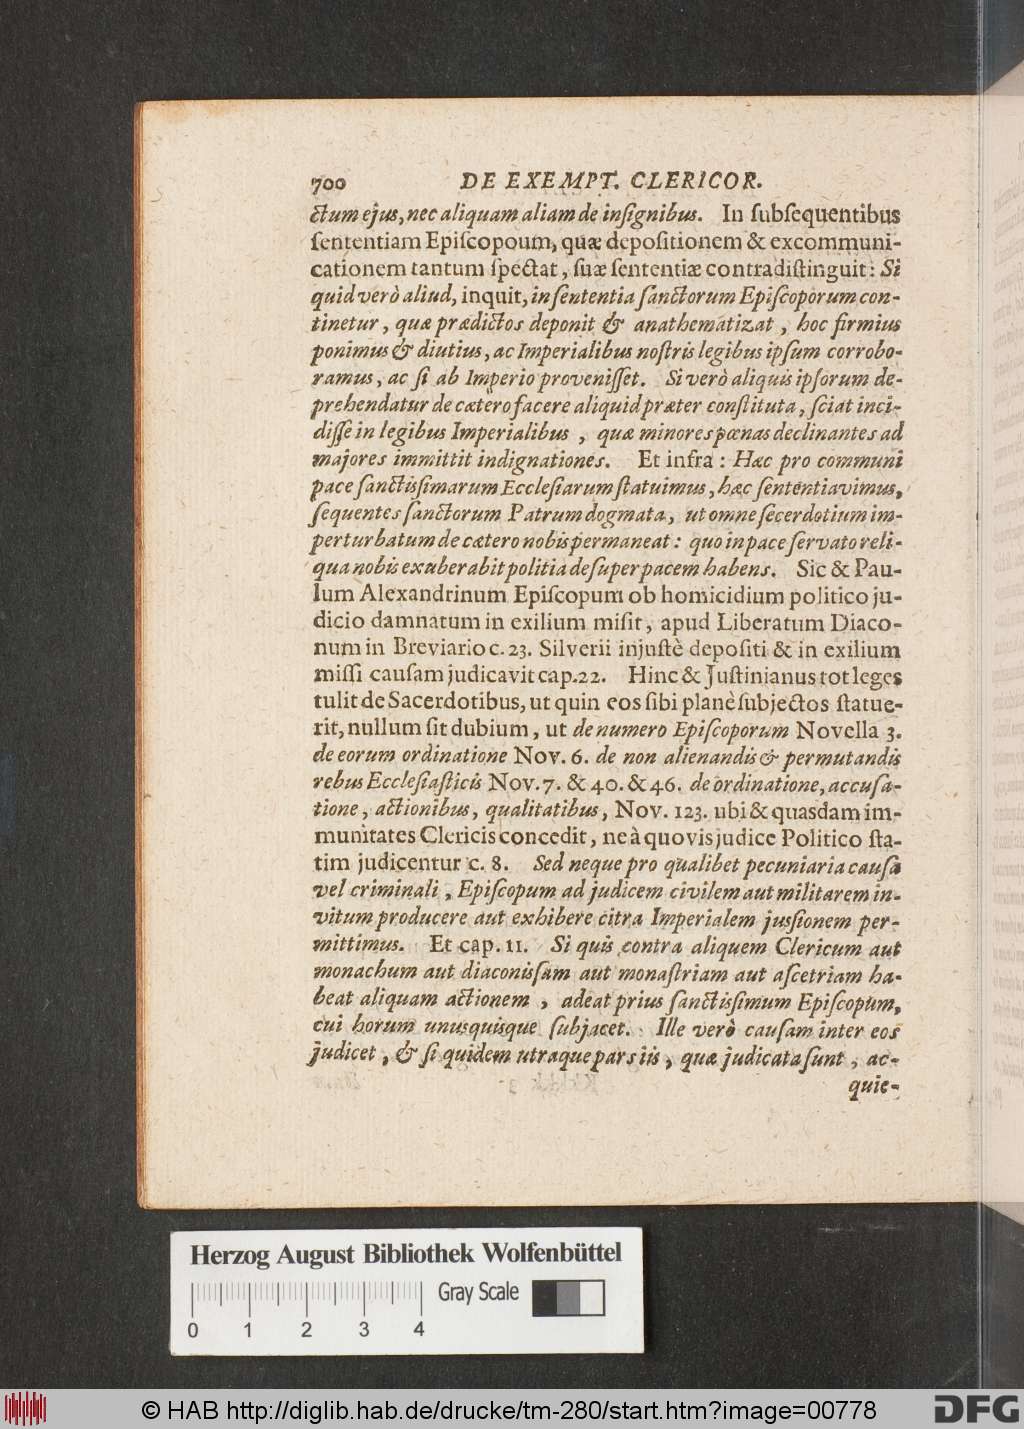 700 DE EXEMPT. CLERICOR.
ctum ejus, nec aliquam aliam de inſignibus. In ſubſequentibus
ſententiam Epiſcopoum, quæ depoſitionem & excommuni-
cationem tantum ſpectat, ſuæ ſententiæ contradiſtinguit: Si
quid verò aliud, inquit, in ſententia ſanctorum Epiſcoporum con-
tinetur, quæ prædictos deponit & anathematizat, hoc firmius
ponimus & diutius, ac Imperialibus noſtris legibus ipſum corrobo-
ramus, ac ſi ab Imperio proveniſſet. Si verò aliquis ipſorum de-
prehendatur de cætero facere aliquid præter conſtituta, ſciat inci-
diſſe in legibus Imperialibus, quæ minores pœnas declinantes ad
majores immittit indignationes. Et infra: Hæc pro communi
pace ſanctisſimarum Eccleſiarum ſtatuimus, hæc ſententiavimus,
ſequentes ſanctorum Patrum dogmata, ut omne ſecerdotium im-
perturbatum de cætero nobis permaneat: quo in pace ſervato reli-
qua nobis exuberabit politia deſuper pacem habens. Sic & Pau-
lum Alexandrinum Epiſcopum ob homicidium politico ju-
dicio damnatum in exilium miſit, apud Liberatum Diaco-
num in Breviario c. 23. Silverii injuſtè depoſiti & in exilium
miſſi cauſam judicavit cap. 22. Hinc & Juſtinianus tot leges
tulit de Sacerdotibus, ut quin eos ſibi planè ſubjectos ſtatue-
rit, nullum ſit dubium, ut de numero Epiſcoporum Novella 3.
de eorum ordinatione Nov. 6. de non alienandis & permutandis
rebus Eccleſiaſticis Nov. 7. & 40. & 46. de ordinatione, accuſa-
tione, actionibus, qualitatibus, Nov. 123. ubi & quasdam im-
munitates Clericis concedit, ne à quovis judice Politico ſta-
tim judicentur c. 8. Sed neque pro qualibet pecuniaria cauſa
vel criminali, Epiſcopum ad judicem civilem aut militarem in-
vitum producere aut exhibere citra Imperialem jusſionem per-
mittimus. Et cap. 11. Si quis contra aliquem Clericum aut
monachum aut diaconisſam aut monaſtriam aut aſcetriam ha-
beat aliquam actionem, adeat prius ſanctisſimum Epiſcopum,
cui horum unusquisque ſubjacet. Ille verò cauſam inter eos
judicet, & ſi quidem utraque pars iis, quæ judicata ſunt, ac-
quie-
Herzog August Bibliothek Wolfenbüttel
Gray Scale
0 1 2 3 4
© HAB http://diglib.hab.de/drucke/tm-280/start.htm?image=00778
DFG